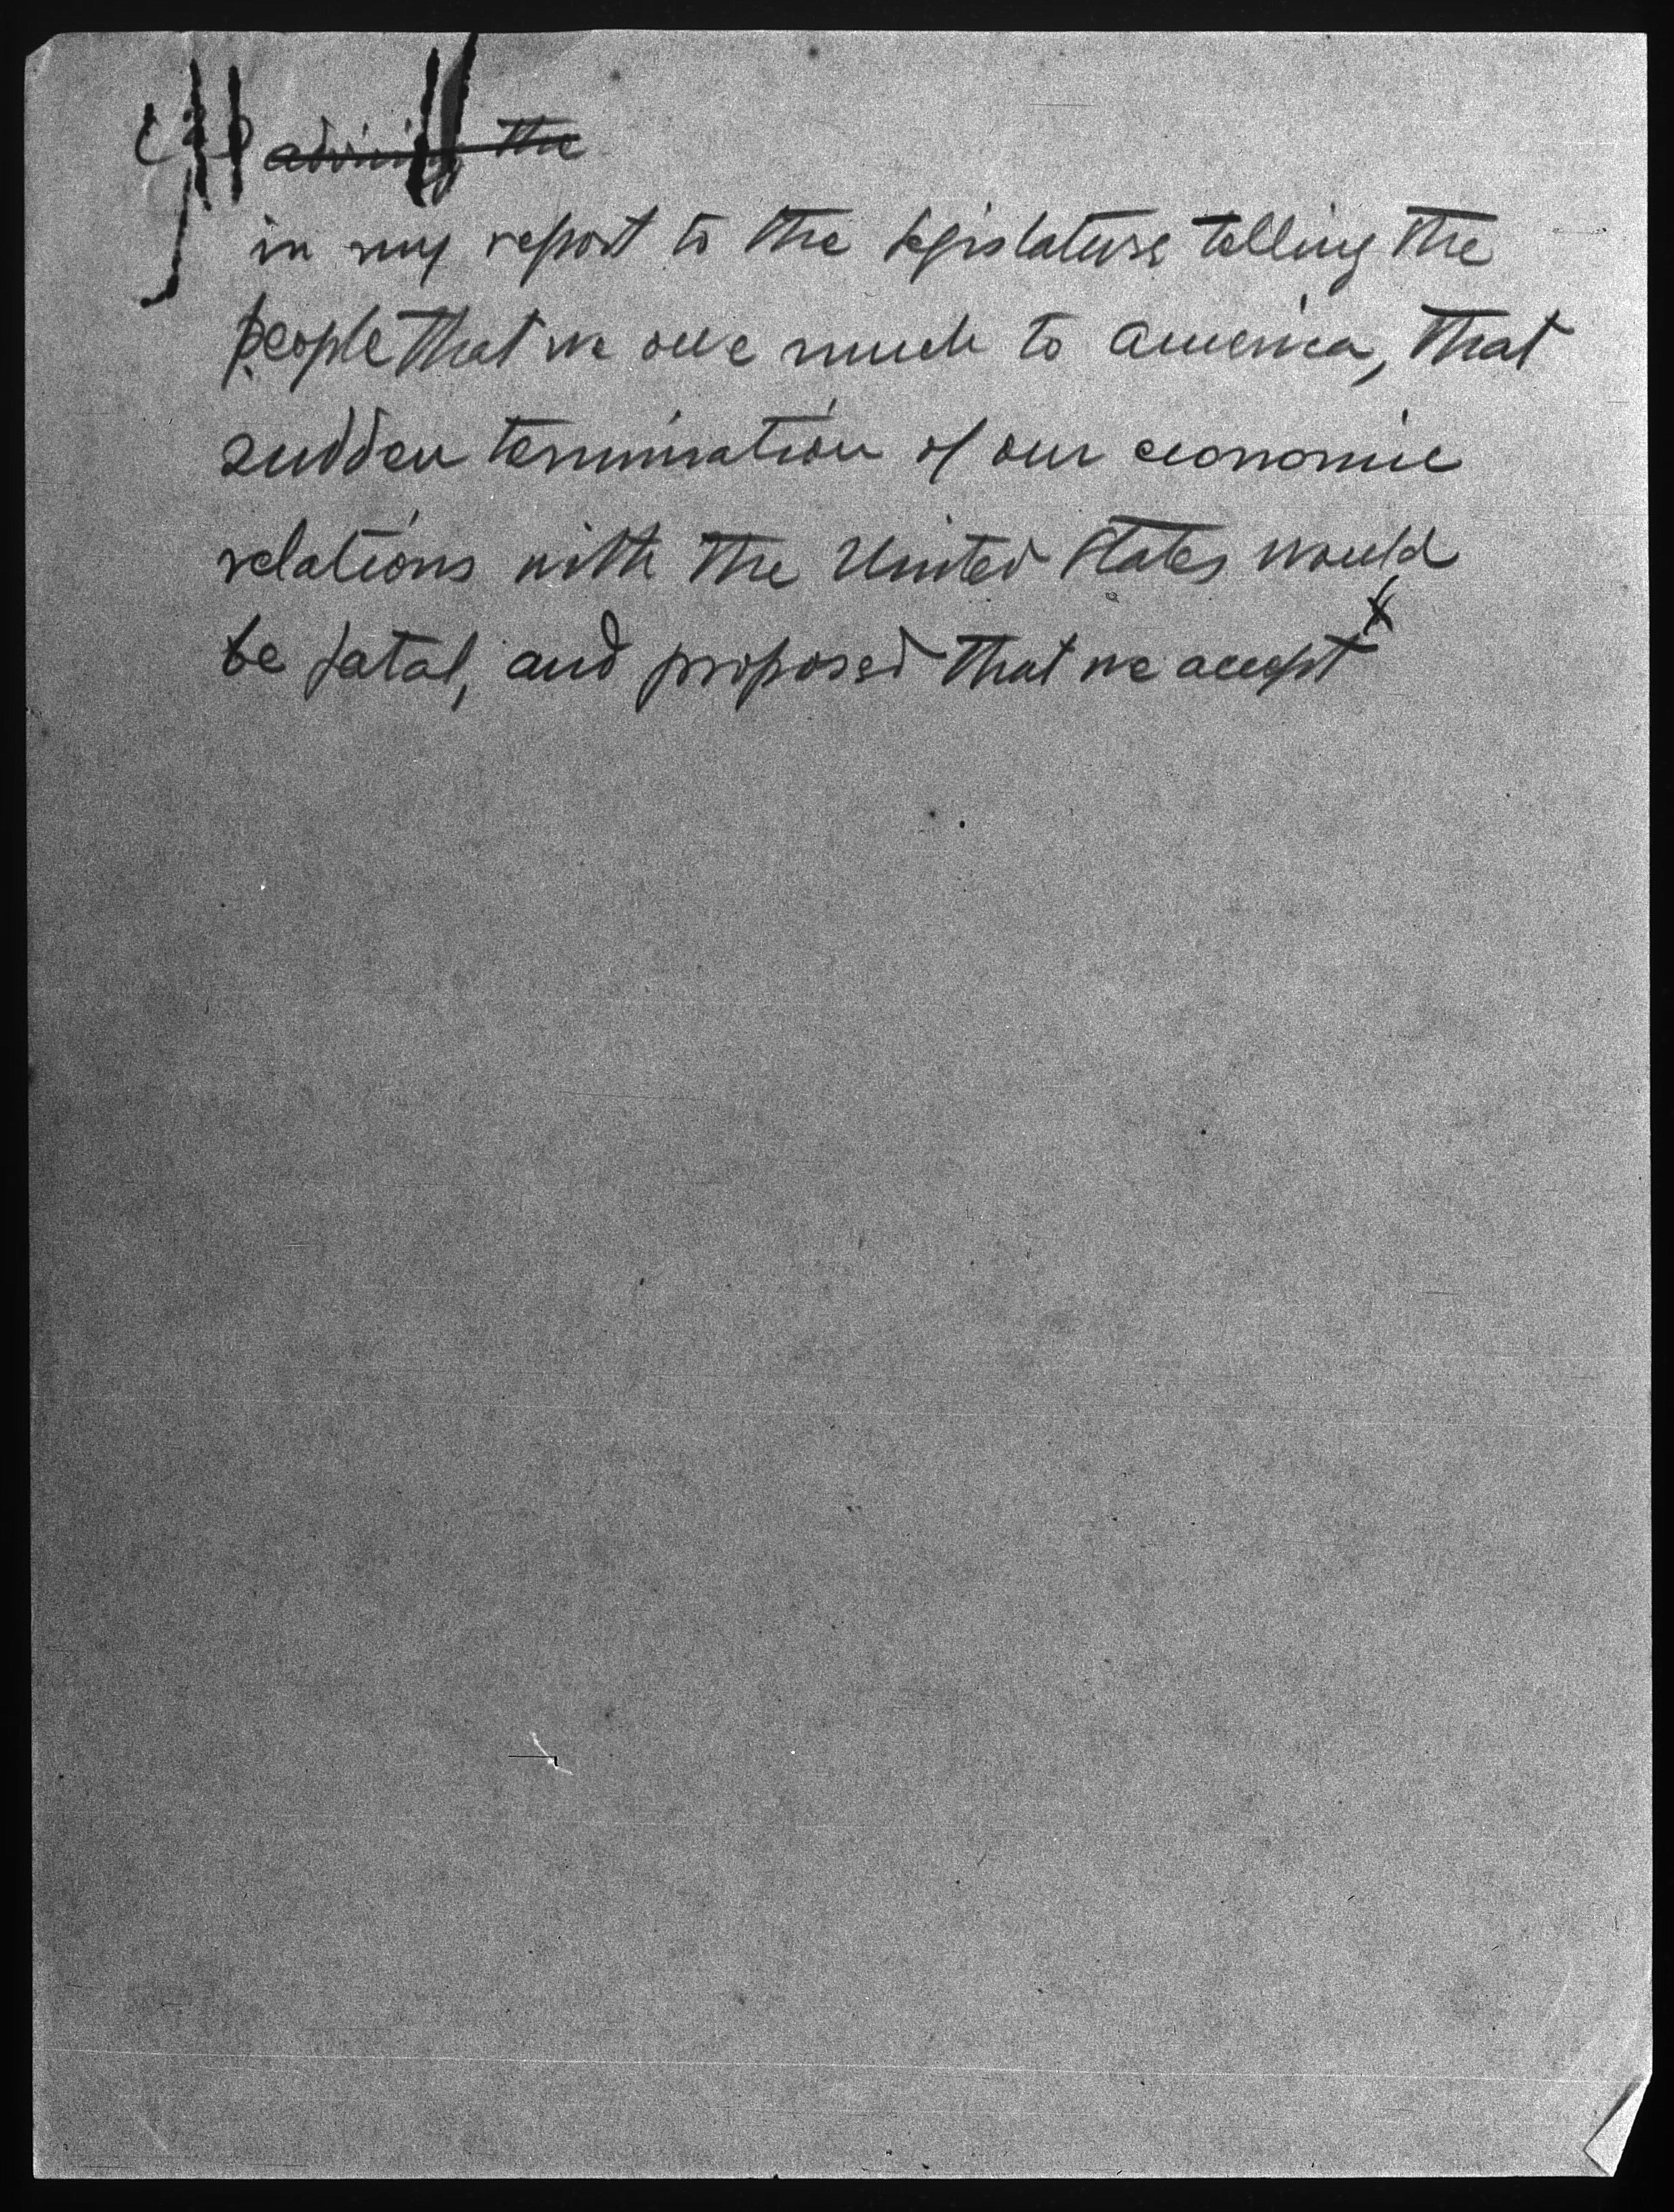 advising the
in my report to the legislature telling the
people that we owe much to America, that
sudden termination of our economic
relations with the United States would
be fatal, and proposed that we accept